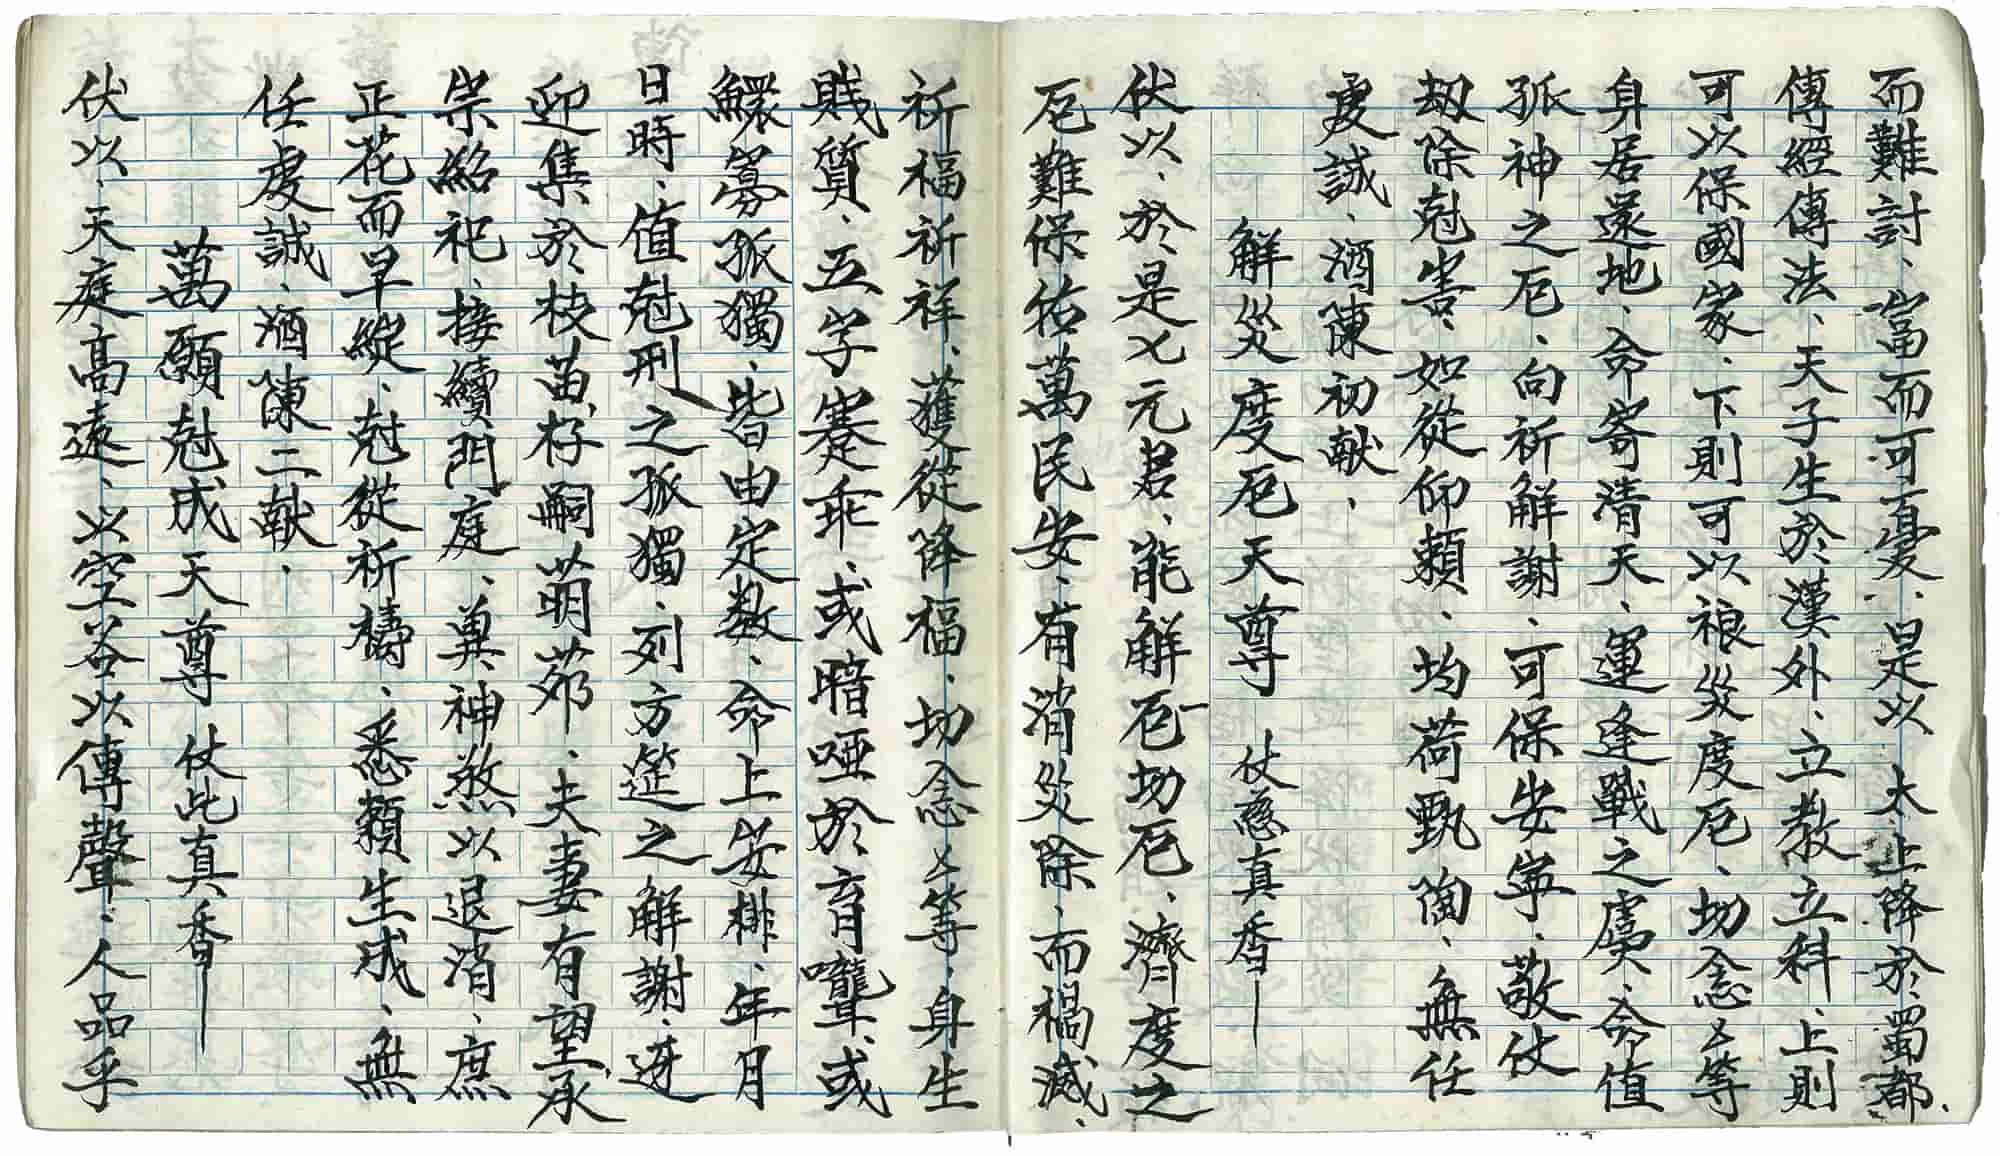 而難討、富而可憂、是以 太上降於蜀都、
傳經傳法、天子生於漢外、立教立科、上則
可以保國家、下則可以禳災度厄、切念〻等
身居遠地、命寄清天、運逢戰之處、命值
孤神之厄、向祈解謝、可保安寧、敬仗
劫除尅害、如從仰賴、均荷甄陶、無任
虔誠、酒陳初献、
解災度厄天尊 仗慈真香
伏以、於是七元君、能解厄切厄、濟度之
厄難保佑萬民安、有消災除、而禍滅、
祈福祈祥、獲從降福、切念〻等、身生
賎質、五字蹇乖、或暗啞於育聾、或
鰥寡孤獨、皆由定数、命上安排、年月
日時、值尅刑之孤獨、列方筵之解謝、迓
迎集於枝苗、柠嗣萌茆、夫妻有望承
崇紹祀、接續門庭、兾神煞以退消、庶
正花而早綻、尅從祈檮、悉頼生成、無
任虔誠、酒陳二献、
萬願尅成天尊 仗此真香
伏以、天庭高遠、以空谷以傳聲、人品乎